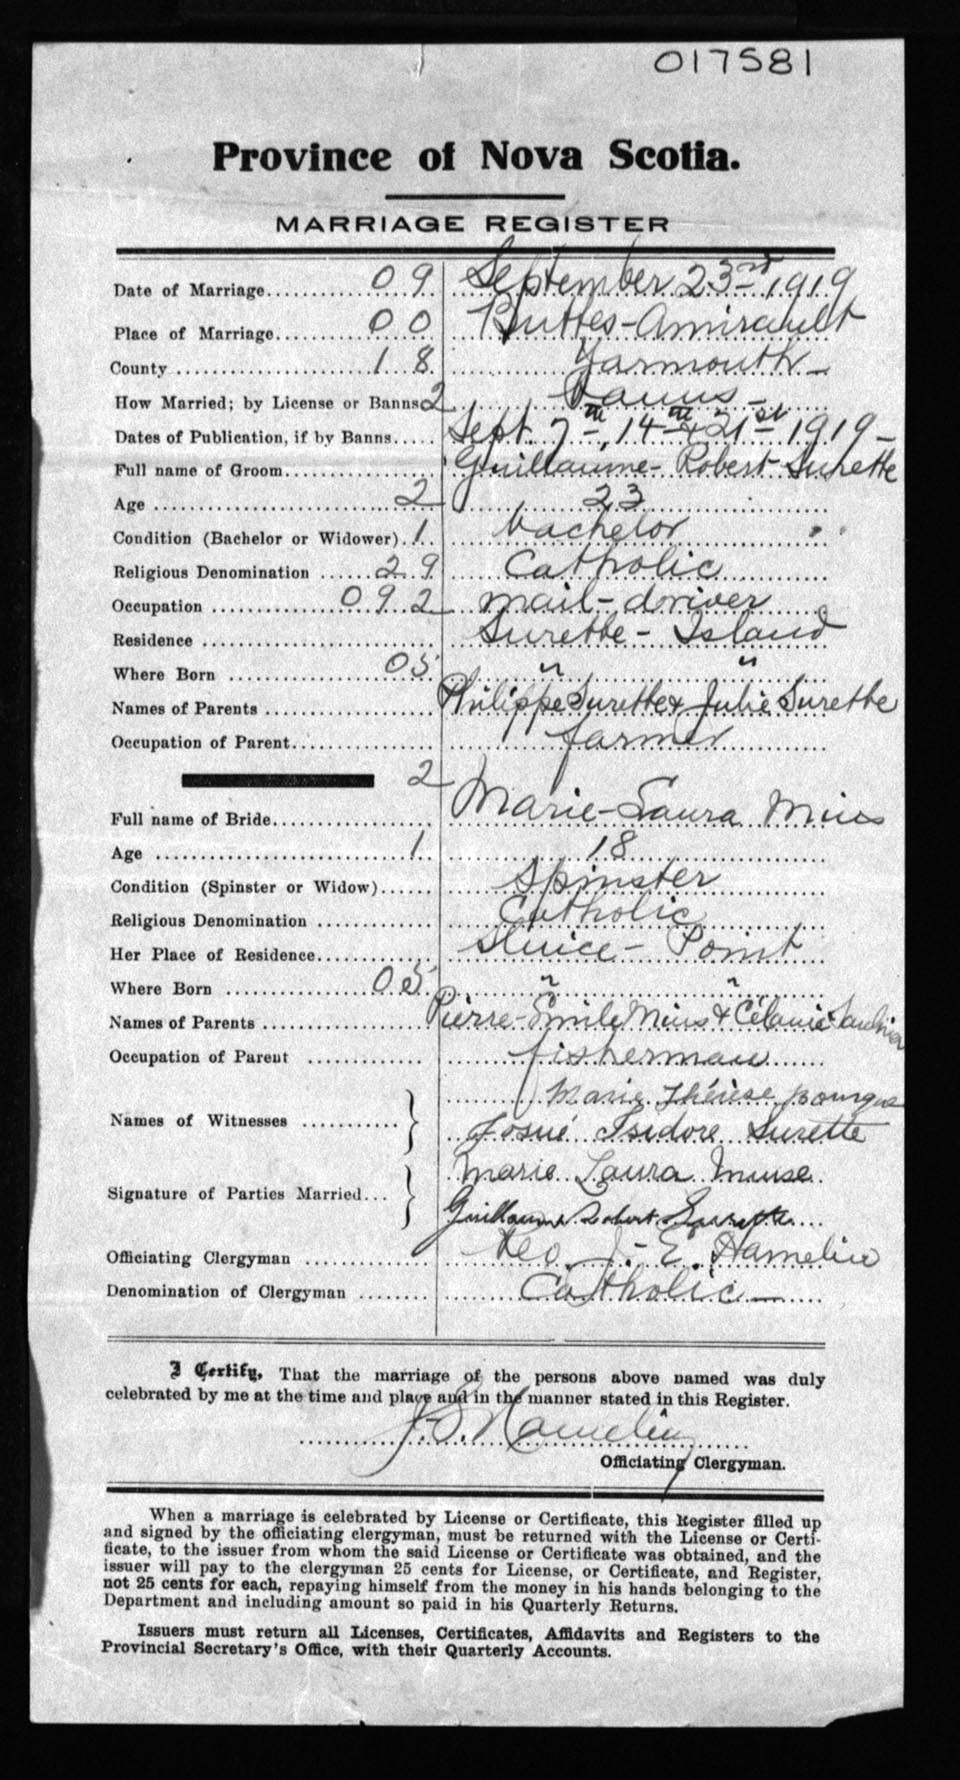 017581
Province of Nova Scotia.
MARRIAGE REGISTER
Date of Marriage 09 September 23rd 1919
Place of Marriage 00 Buttes-Amirault
County 18 Yarmouth
How Married; by License or Banns 2 Banns
Dates of Publication, if by Banns Sept. 7th, 14th & 21st 1919
Full name of Groom Guillaume-Robert Surette
Age 2 23
Condition (Bachelor or Widower) 1 bachelor
Religious Denomination 29 Catholic
Occupation 092 mail-driver
Residence Surette-Island
Where Born 05 " "
Names of Parents Philippe Surette & Julie Surette
Occupation of Parent farmer
2
Full name of Bride Marie-Laura Mius
Age 1 18
Condition (Spinster or Widow) Spinster
Religious Denomination Catholic
Her Place of Residence Sluice-Point
Where Born 05 " "
Names of Parents Pierre-Emile Mius & Célanie Saulnier
Occupation of Parent fisherman
Names of Witnesses Marie Thérèse Bourque
Josué Isidore Surette
Signature of Parties Married Marie Laura Muise
Guillaume Robert Surette
Officiating Clergyman Rev. J.-E. Hamelin
Denomination of Clergyman Catholic
I Certify, That the marriage of the persons above named was duly
celebrated by me at the time and place and in the manner stated in this Register.
J. E. Hamelin
Officiating Clergyman.
When a marriage is celebrated by License or Certificate, this Register filled up
and signed by the officiating clergyman, must be returned with the License or Certi-
ficate, to the issuer from whom the said License or Certificate was obtained, and the
issuer will pay to the clergyman 25 cents for License, or Certificate, and Register,
not 25 cents for each, repaying himself from the money in his hands belonging to the
Department and including amount so paid in his Quarterly Returns.
Issuers must return all Licenses, Certificates, Affidavits and Registers to the
Provincial Secretary's Office, with their Quarterly Accounts.